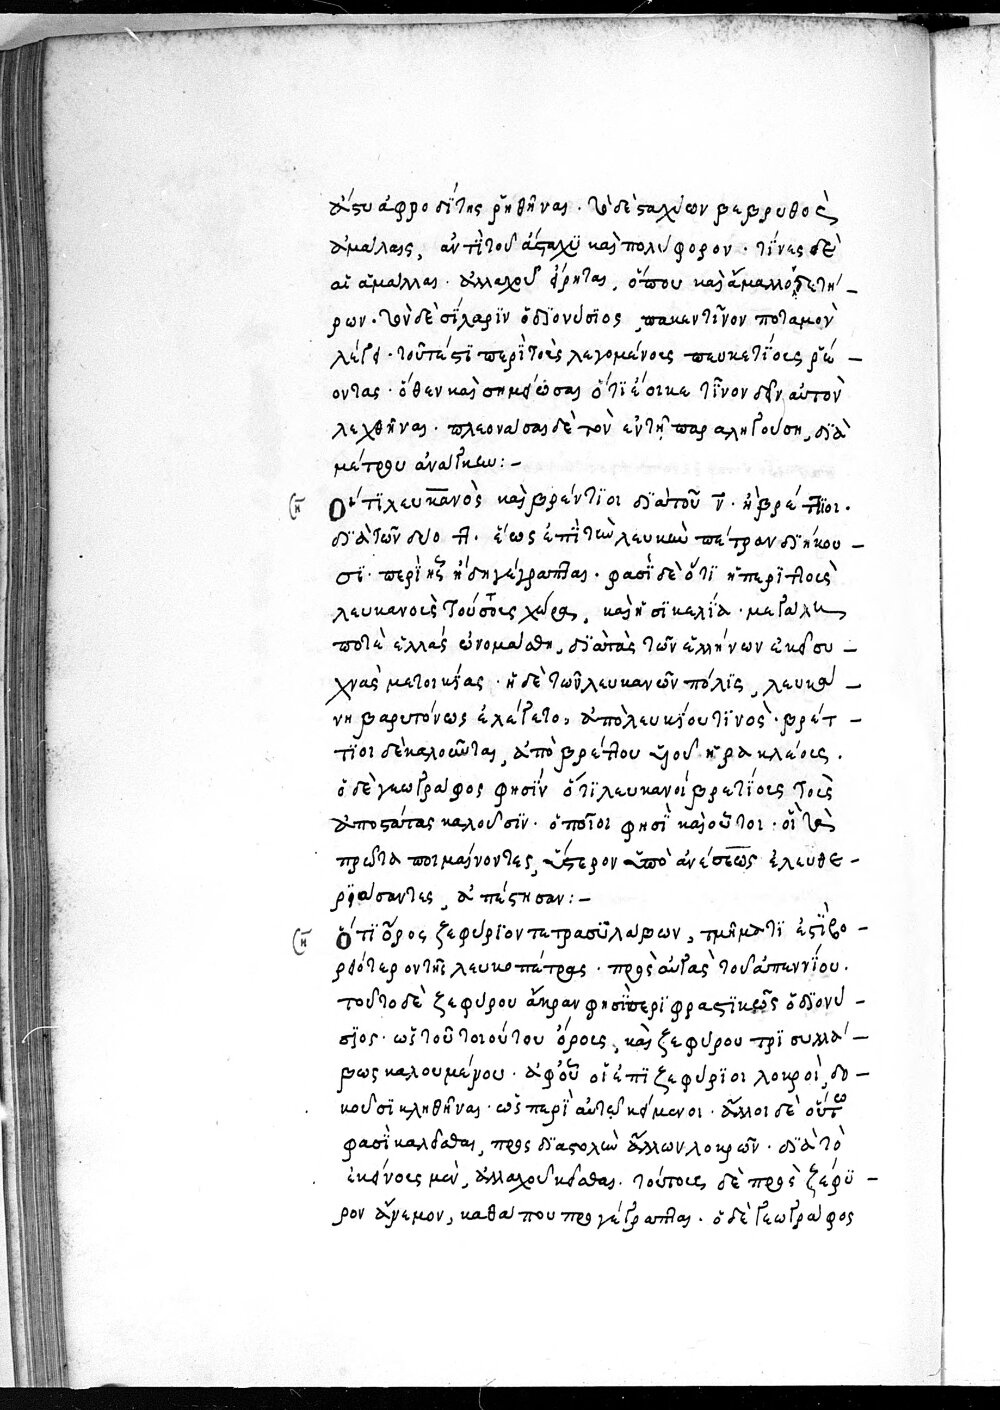 ἄστυ ἀφροδίτης ῥηθῆναι· τὸ δὲ σταχύων βεβρυθὸς
ἀμάλαις, ἀντὶ τοῦ ἀσταχὺ καὶ πολύφορον· τίνες δὲ
αἱ ἄμαλλαι· ἀλλαχοῦ εἴρηται, ὅπου καὶ ἀμαλλοδετή-
ρων· τὸν δὲ σίλαριν ὁ διονύσιος, πακεντῖνον ποταμὸν
λέγει· τουτέστι περὶ τοὺς λεγομένους πευκετίους ῥέ-
οντας· ὅθεν καὶ σημειῶσαι ὅτι ἔοικε τῖνον δεῖν αὐτὸν
λεχθῆναι· πλεονάσαι δὲ τὸν ἐν τῇ παραληγούσῃ, διὰ
μέτρου ἀνάγκην:-
Ὅτι λευκανοὶ καὶ βρέντιοι διὰ τοῦ ν· ἢ βρέττιοι·
διὰ τῶν δύο ττ· ἕως ἐπὶ τὴν λευκὴν πέτραν διήκου-
σι· περὶ ἧς ἤδη γέγραπται· φασὶ δὲ ὅτι ἡ περὶ τοὺς
λευκανοὺς τούτους χώρα, καὶ ἡ σικελία· μεγάλη
ποτὲ ἑλλὰς ὠνομάσθη, διὰ τὰς τῶν ἑλλήνων ἐκεῖ συ-
χνὰς μετοικίας· ἡ δὲ τῶν λευκανῶν πόλις, λευκά-
νη βαρυτόνως ἐλέγετο, ἀπὸ λευκίου τινός· βρέτ-
τιοι δὲ καλοῦνται, ἀπὸ βρέττου υἱοῦ ἡρακλέους·
ὁ δὲ γεωγράφος φησὶν ὅτι λευκανοὶ βρετίους τοὺς
ἀποστάτας καλοῦσιν· ὁποῖοι φησὶ καὶ οὗτοι· οἳ τὰ
πρῶτα ποιμαίνοντες, ὕστερον ὑπὸ ἀνέσεως ἐλευθε-
ριάσαντες, ἀπέστησαν:-
Ὅτι ὄρος ζεφύριον τετρασυλλάβων, τμήματι ἐστὶ βο-
ρειότερον τῆς λευκοπέτρας· πρὸς αὐγὰς τοῦ ἀπεννίου·
τοῦτο δὲ ζεφύρου ἄκραν φησὶ περιφραστικῶς ὁ διονύ-
σιος· ὡς τοῦ τοιούτου ὄρους, καὶ ζεφύρου τρισυλλά-
βως καλουμένου· ἀφ' οὗ οἱ ἐπιζεφύριοι λοκροὶ, δο-
κοῦσι κληθῆναι· ὡς περὶ αὐτὸ κείμενοι· ἄλλοι δὲ οὕτω
φασὶ καλεῖσθαι, πρὸς διαστολὴν ἄλλων λοκρῶν· διὰ τὸ
ἐκείνους μὲν, ἀλλαχοῦ κεῖσθαι· τούτους δὲ πρὸς ζέφυ-
ρον ἄνεμον, καθά που προγέγραπται· ὁ δὲ γεωγράφος